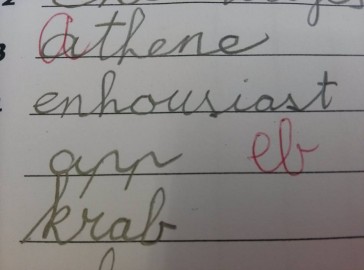 Athene
enhousiast
app eb
krab